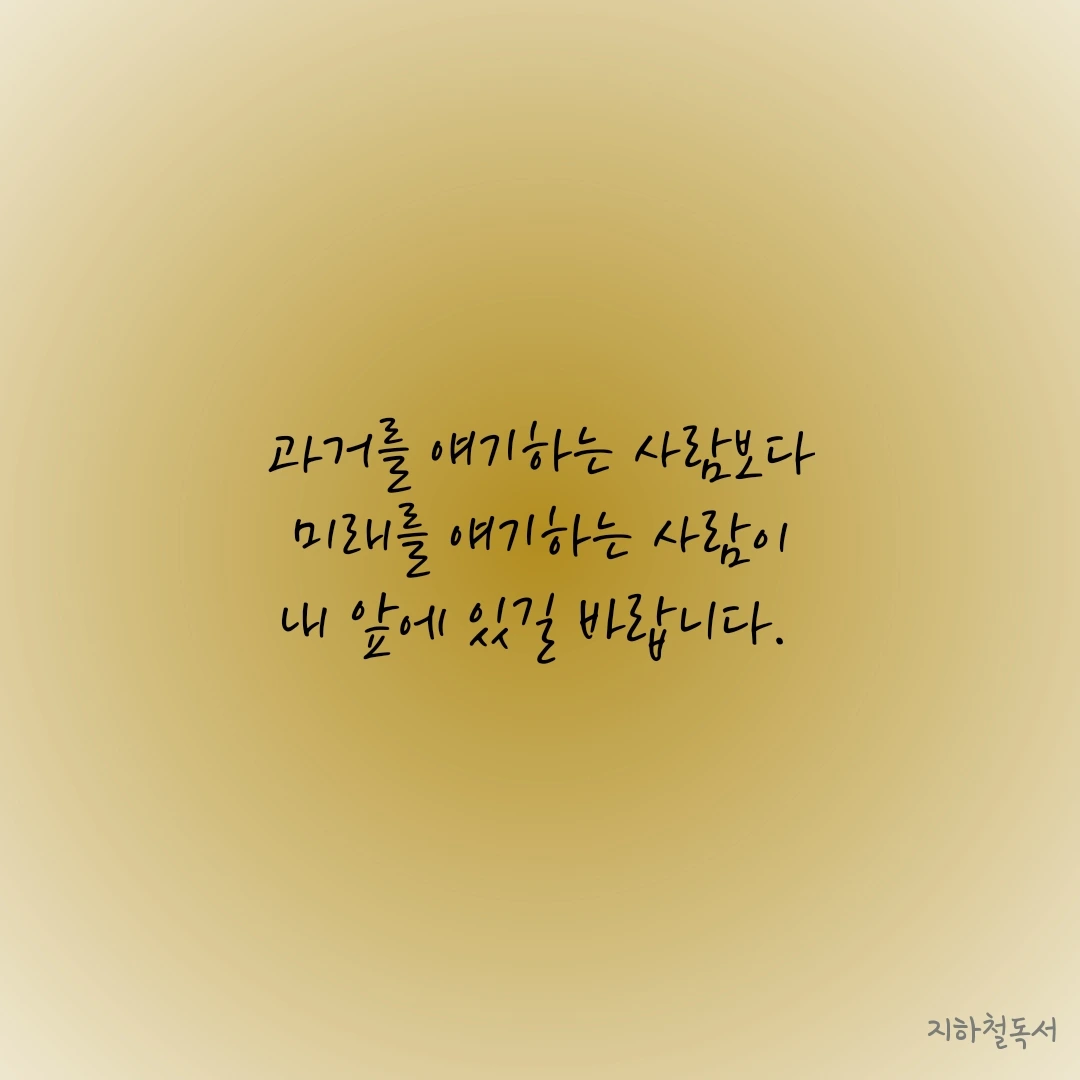 과거를 얘기하는 사람보다
미래를 얘기하는 사람이
내 앞에 있길 바랍니다.
지하철독서